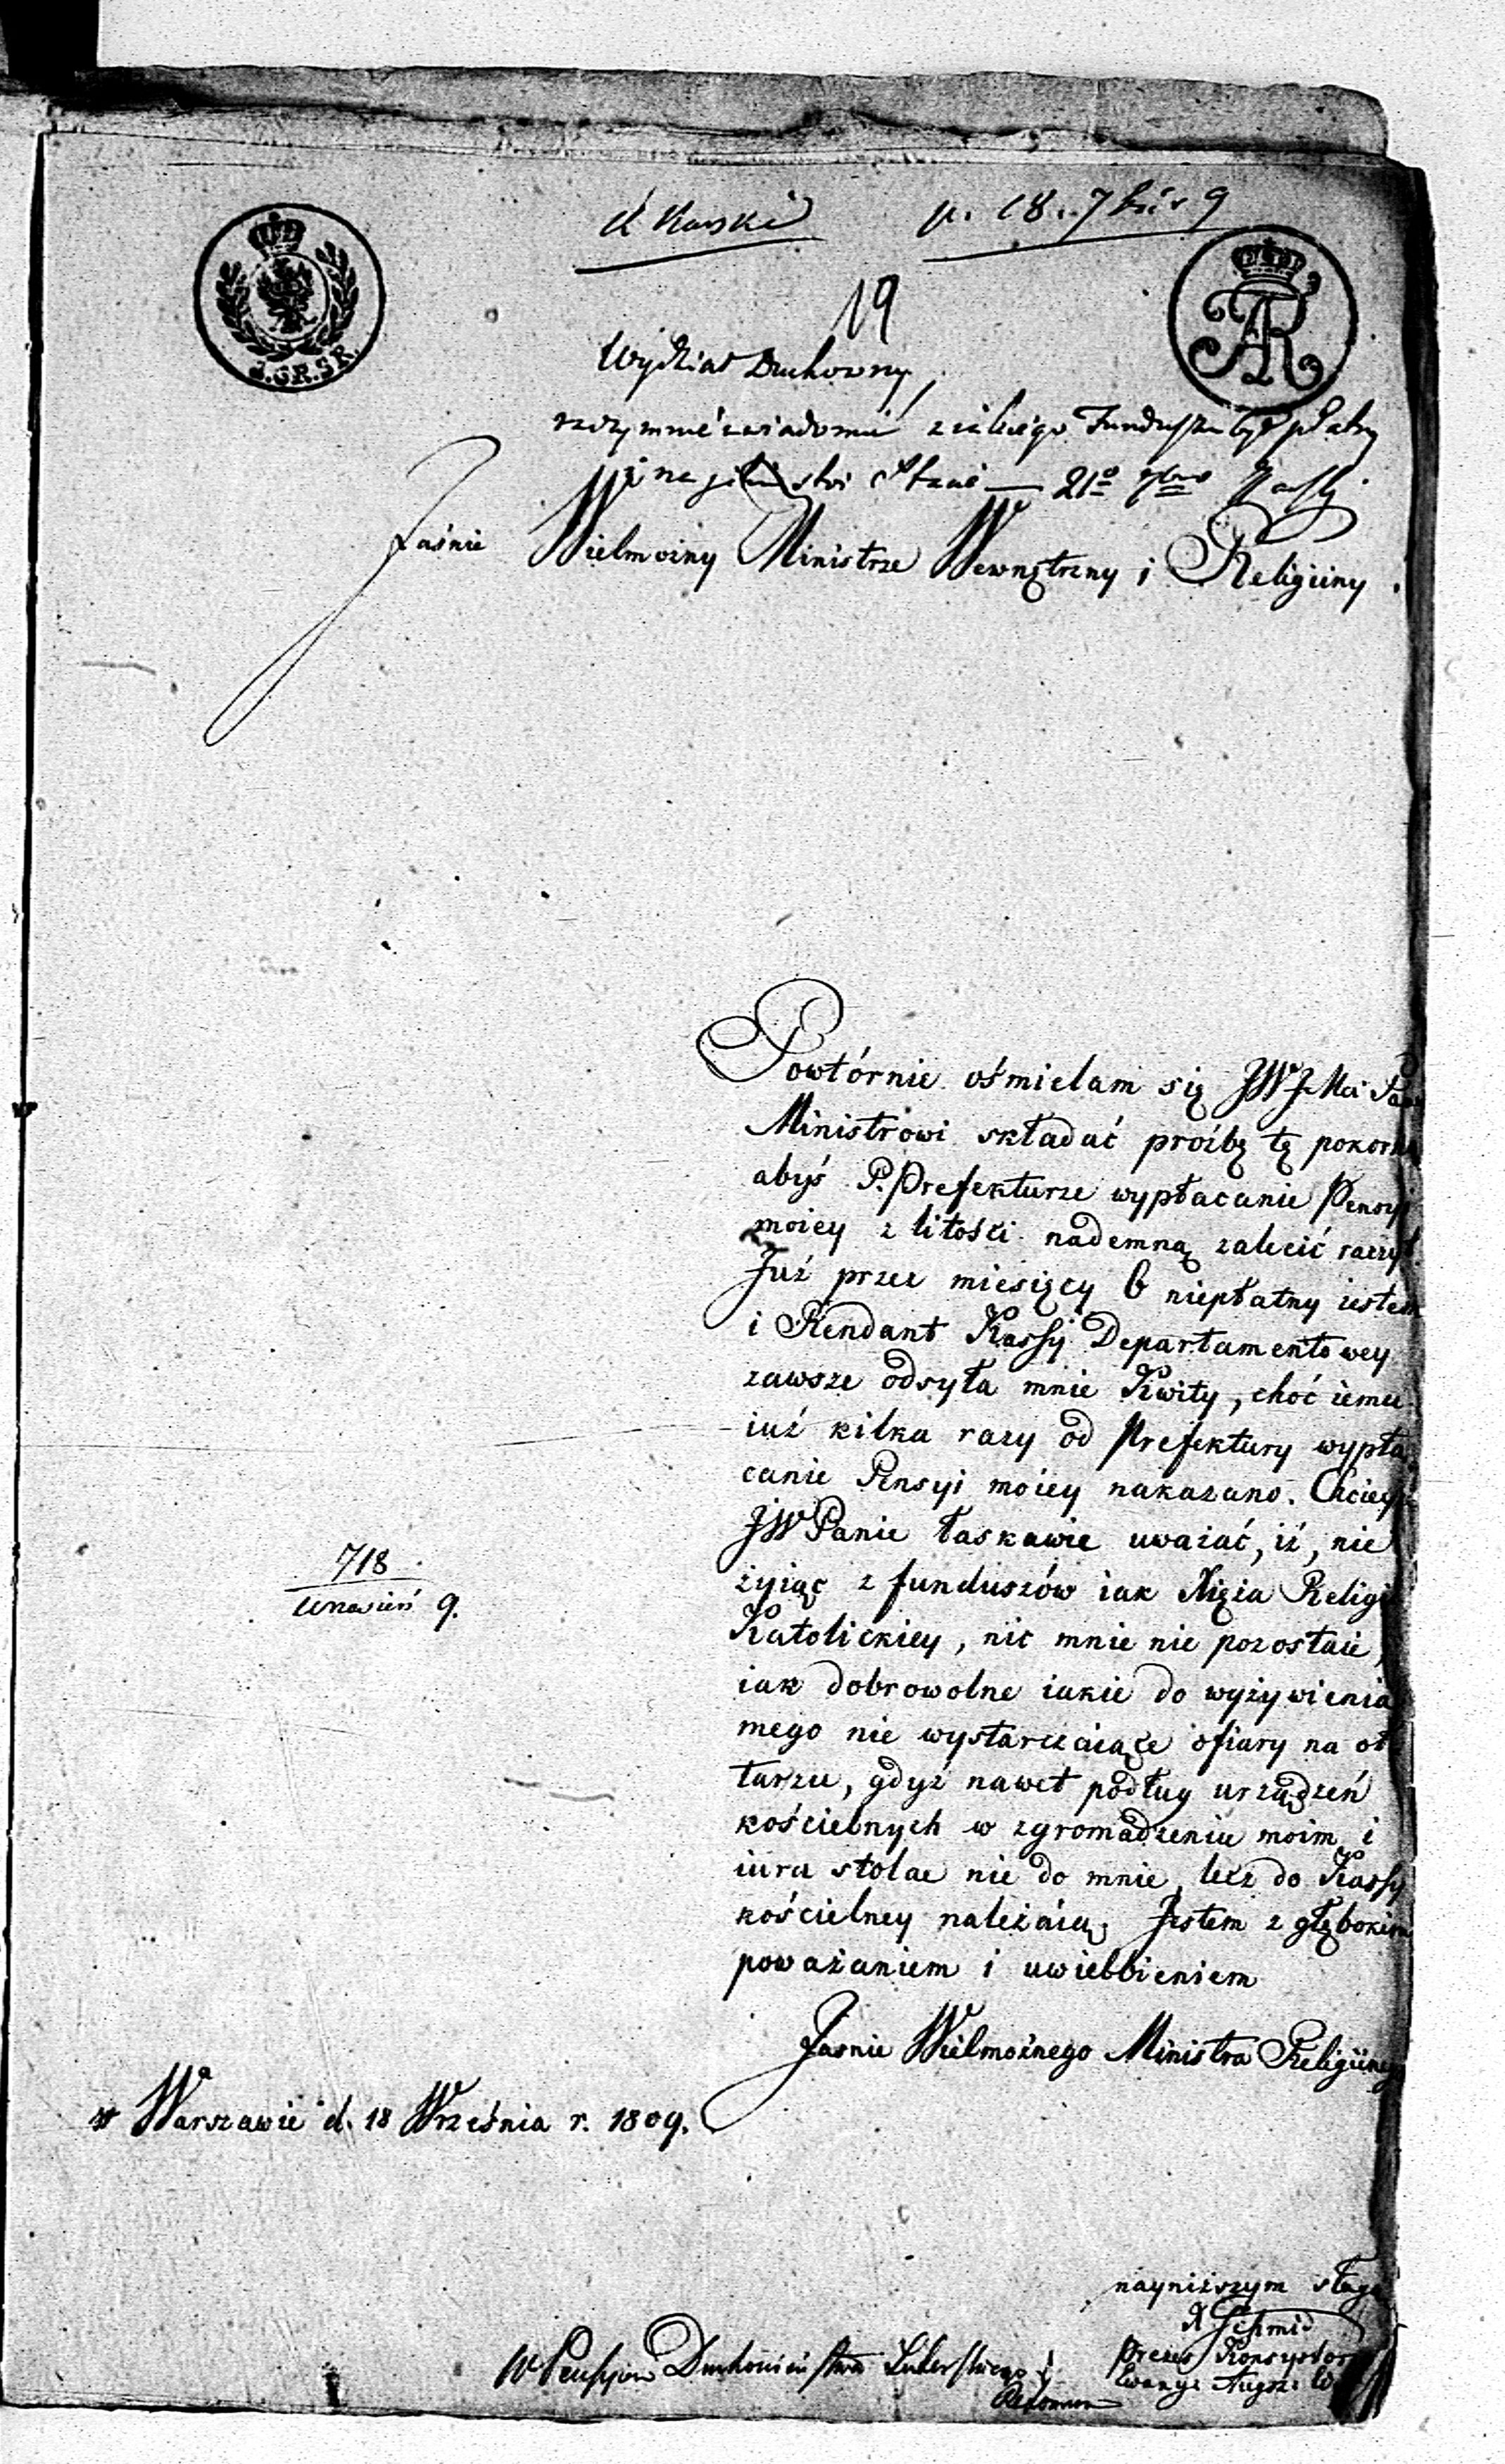 19
Wydział Duchowny,
Jaśnie Wielmożny Ministrze Wewnętrzny i Religiiny.
Powtórnie ośmielam się JWJMci
Ministrowi składać proźbę tę pokorną
abyś P. Prefekturze wypłacanie Pensyi
moiey z litości nademną zalecić raczył.
Już przez miesięcy 6 niepłatny iestem
i Rendant Kassy Departamentowey
zawsze odsyła mnie Kwity, choć iemu
iuż kilka razy od Prefektury wypła
canie Pensyi moiey nakazano. Chciey
JWPanie łaskawie uważać, iż, nie
żyiąc z funduszów iak Xięża Religii
Katolickiey, nic mnie nie pozostaie,
iak dobrowolne iakie do wyżywienia
mego nie wystarczaiące ofiary na oł
tarzu, gdyż nawet podług urządzeń
kościelnych w zgromadzeniu moim i
iura stolae nie do mnie, lecz do Kassy
kościelney należaią. Jestem z głębokim
poważaniem i uwielbieniem
Jaśnie Wielmożnego Ministra Religiinego
718
9.
w Warszawie d. 18 Września r. 1809.
nayniższym sługą
Schmid
Prezes Konsystorza
Ewang: Augsz: